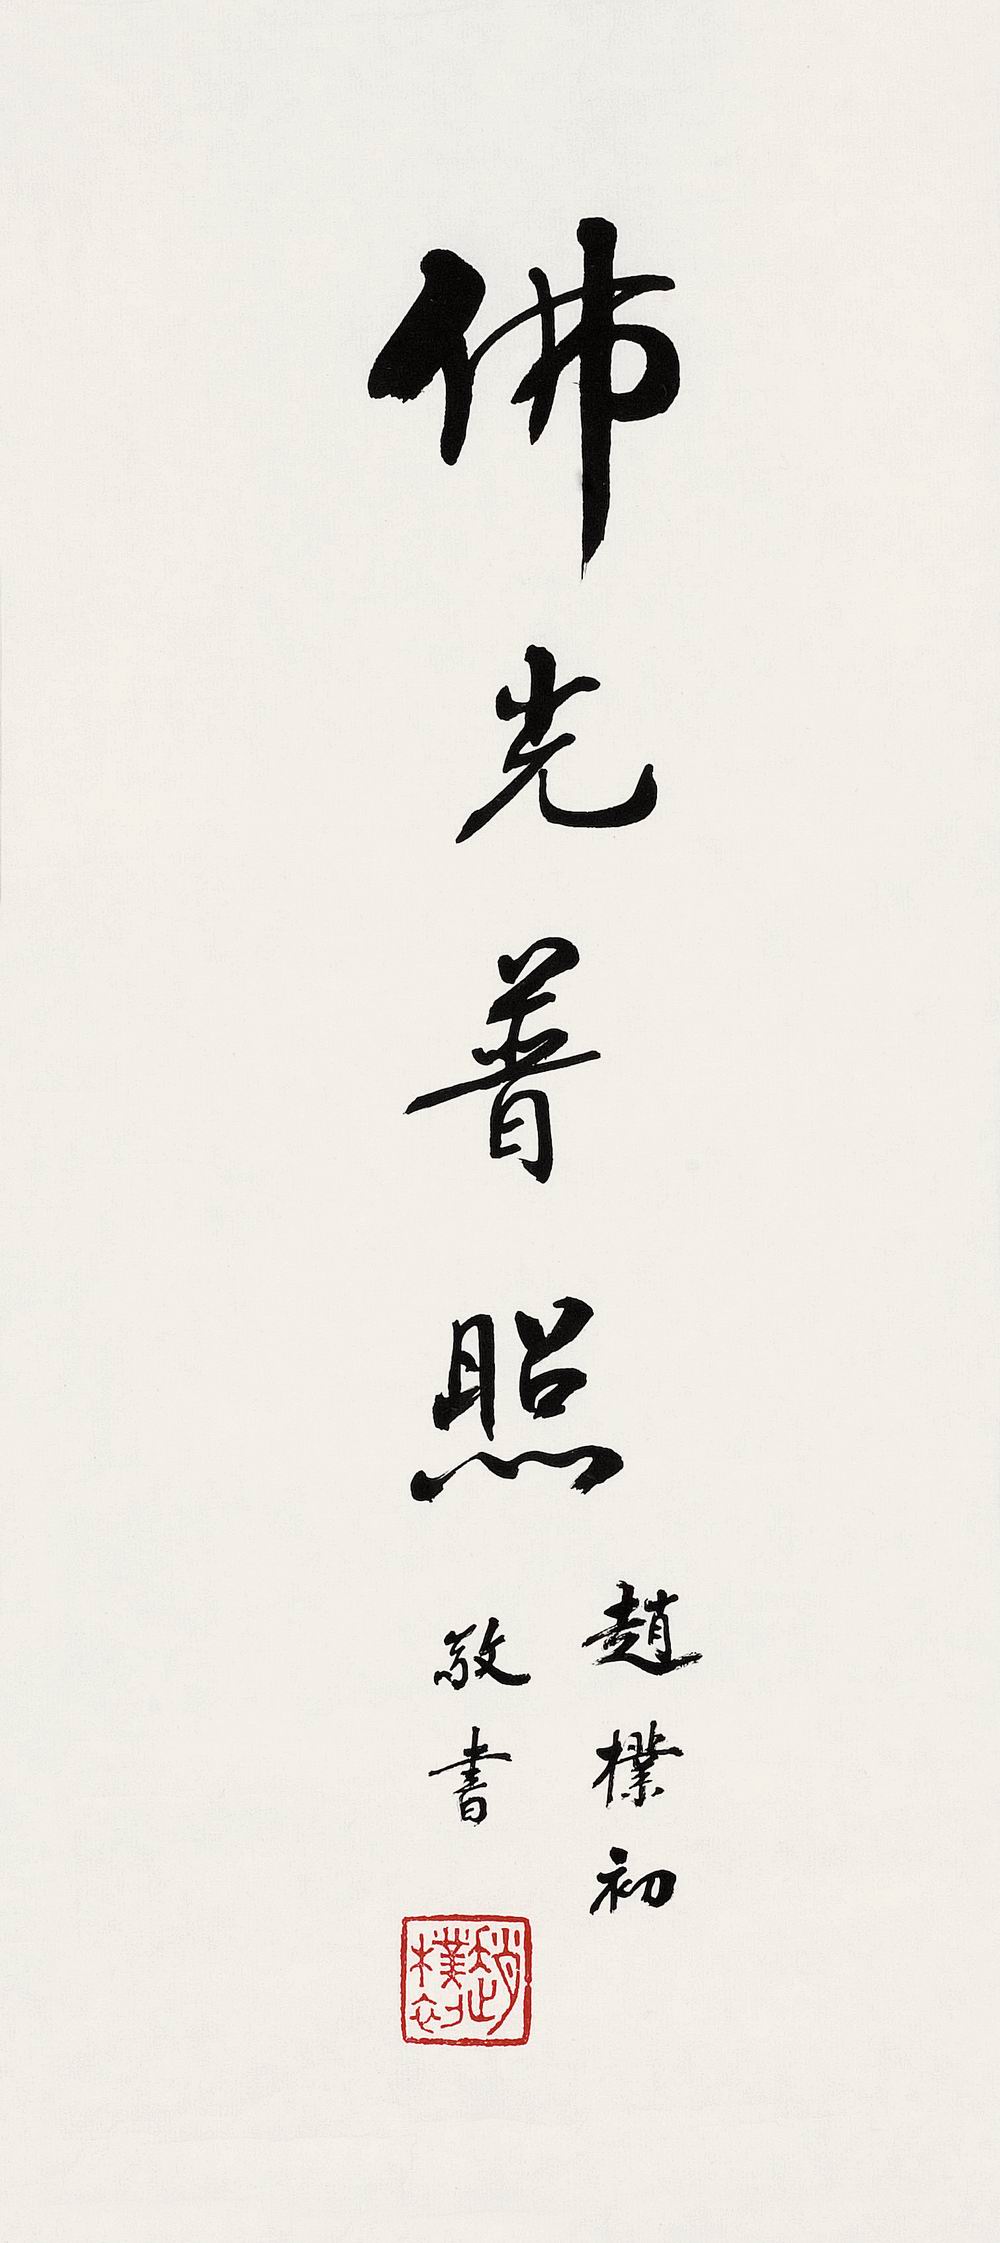 佛光普照
趙樸初
敬書
趙樸初